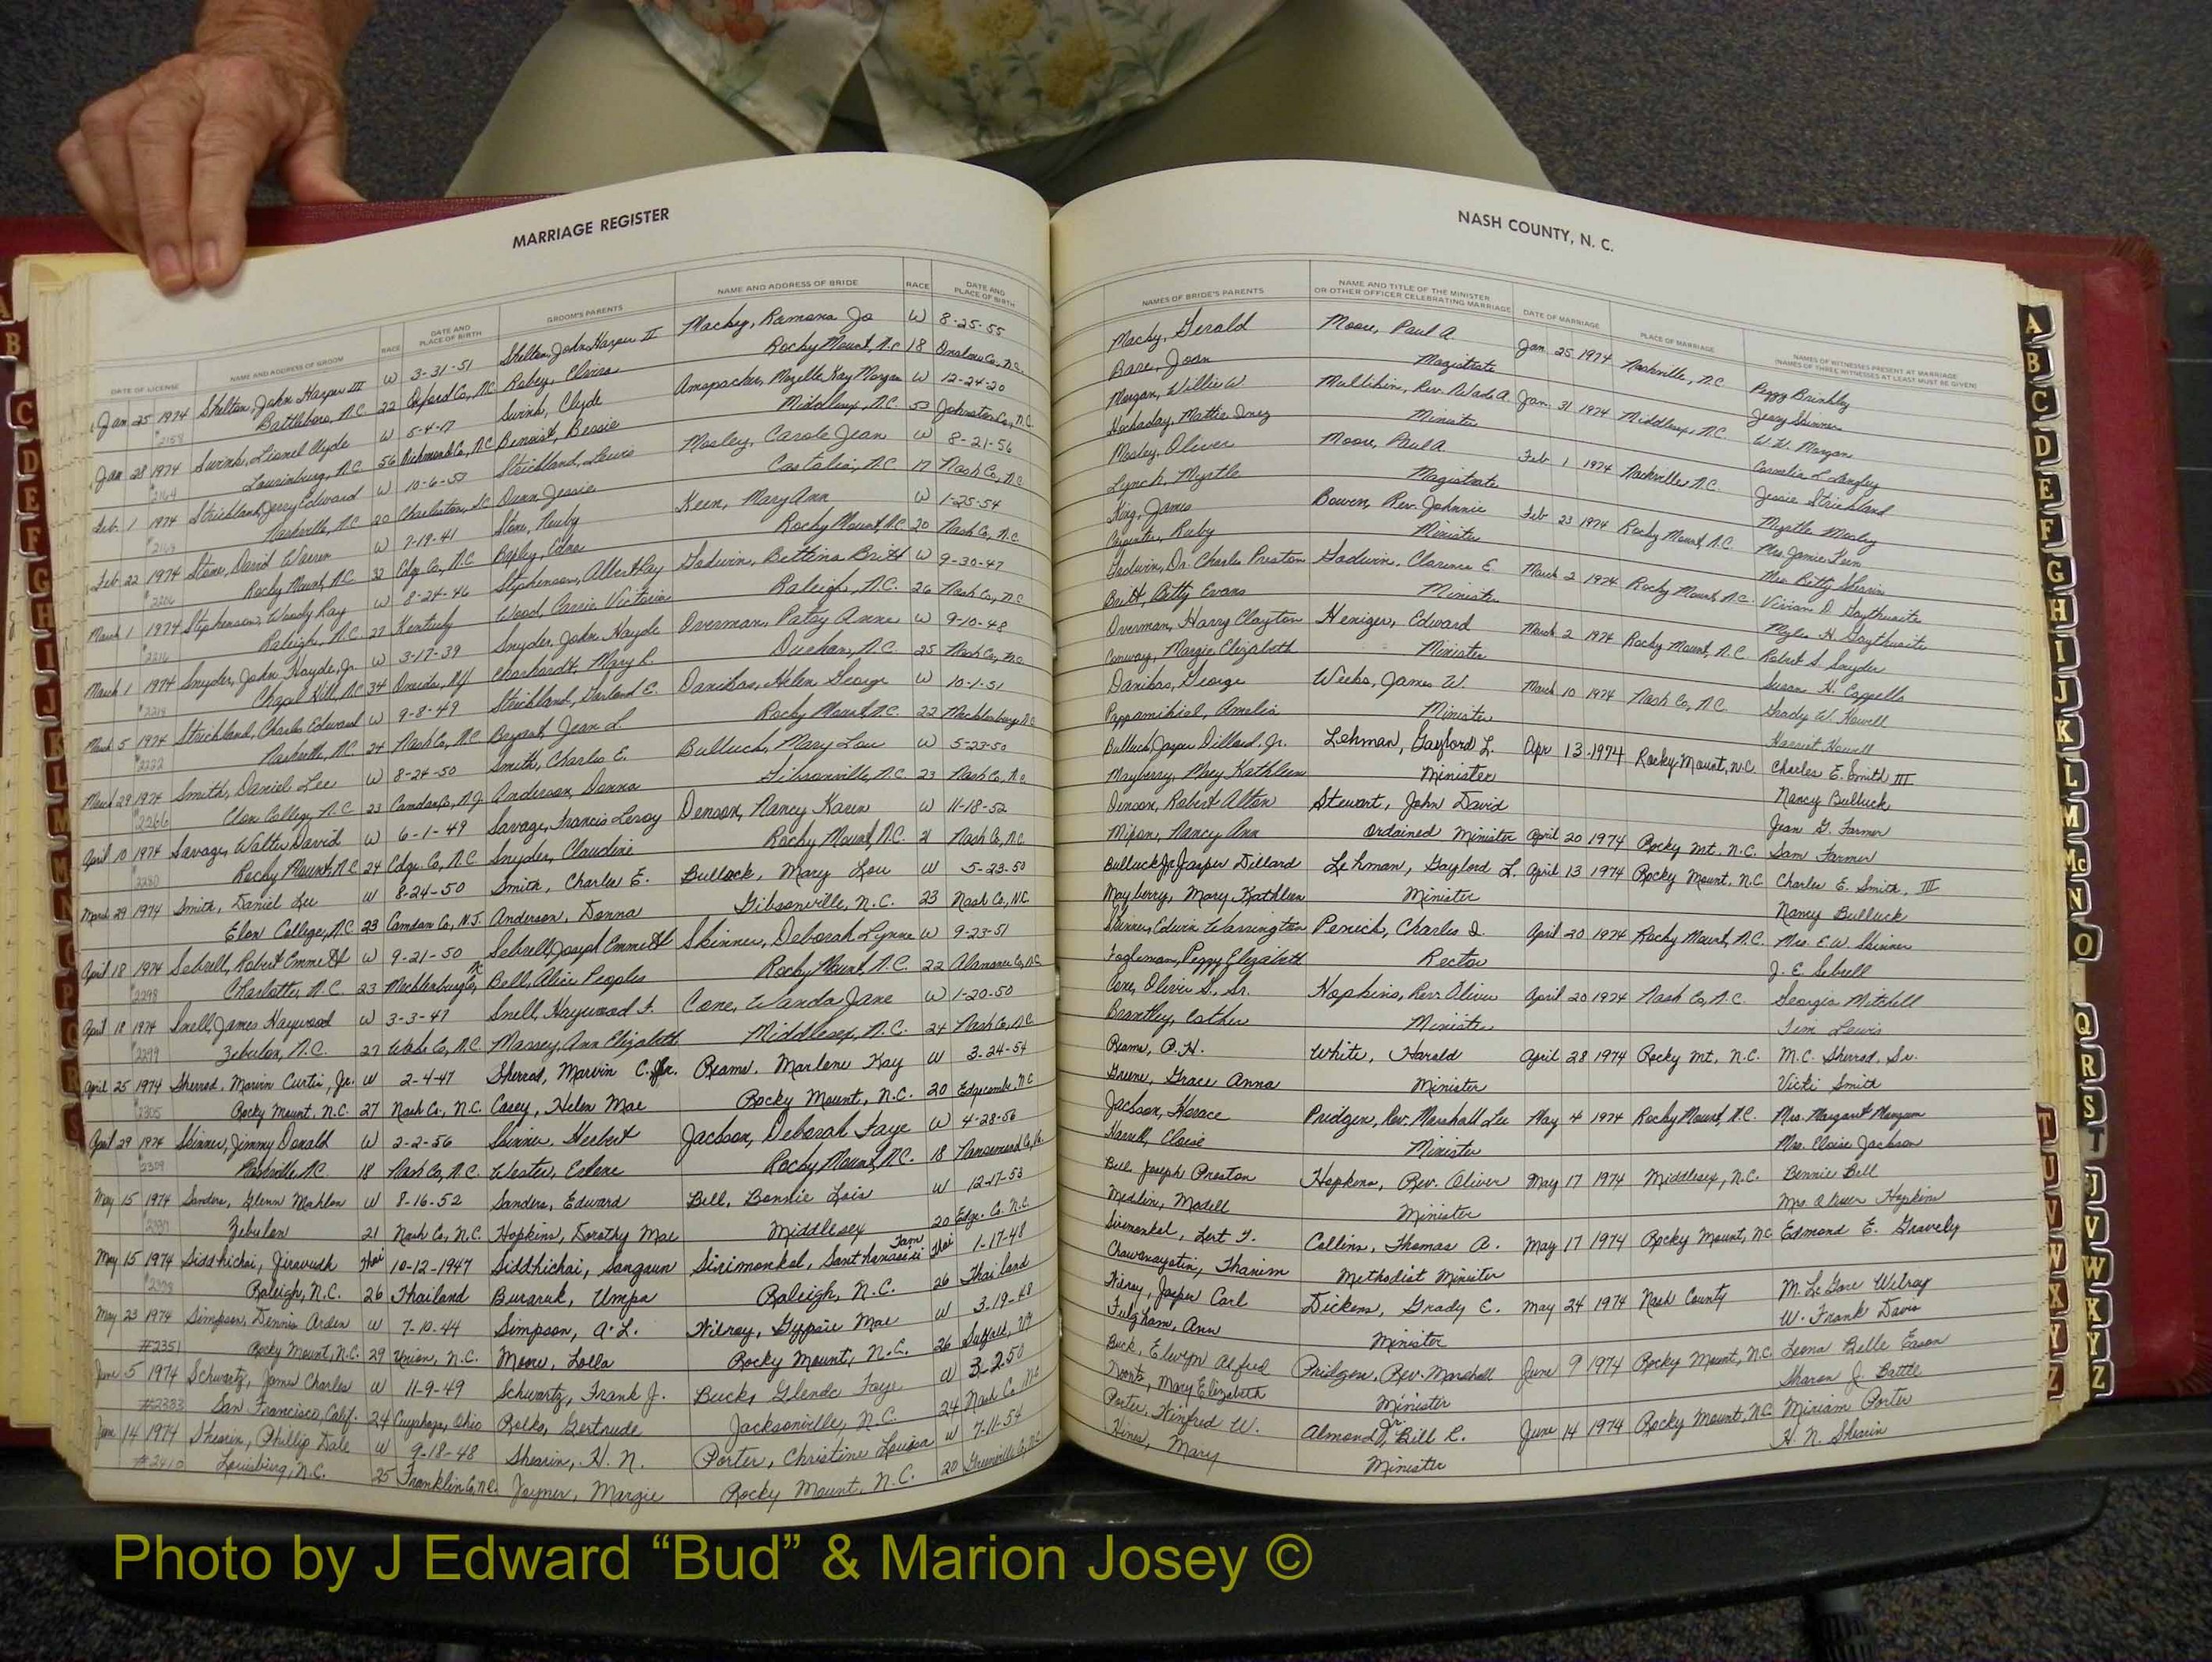 MARRIAGE REGISTER
DATE OF LICENSE NAME AND ADDRESS OF GROOM RACE DATE AND PLACE OF BIRTH GROOM'S PARENTS NAME AND ADDRESS OF BRIDE RACE DATE AND PLACE OF BIRTH
Jan 25 1974 Shelton, John Harper III W 3-31-51 Shelton, John Harper II Macky, Ramona Jo W 8-25-55
Battleboro, N.C. 22 Robey, Elvira Rocky Mount, N.C 18 Onslow Co., N.C.
Jan 28 1974 Swink, Lionel Clyde W 5-4-17 Swink, Clyde Mozelle Kay Morgan W 12-24-20
#2164 Laurinburg, N.C. 56 Richmond Co., N.C. Benoist, Bessie Middlesex, N.C. 53 Johnston Co., N.C.
Feb. 1 1974 Strickland, Jerry Edward W 10-6-53 Strickland, Lewis Mosley, Carole Jean W 8-21-56
Nashville, N.C 20 Charleston, S.C. Dunn, Jessie Castalia, N.C 17 Nash Co., N.C
Feb 22 1974 Stone, David Warren W 7-19-41 Stone, Neuby Keen, Mary Ann W 1-25-54
#2206 Rocky Mount, N.C. 32 Edg. Co., N.C. Edna Rocky Mount, N.C 20 Nash Co., N.C
March 1 1974 Stephenson, Woody Ray W 8-24-46 Stephenson, Albert Ray Godwin, Bettina Britt W 9-30-47
#2216 Raleigh, N.C. 27 Kentucky Wood, Carrie Victoria Raleigh, N.C. 26 Nash Co., N.C
March 1 1974 Snyder, John Hayde, Jr. W 3-17-39 Snyder, John Hayde Overman, Patsy Anne W 9-10-48
#2218 Chapel Hill, N.C. 34 Oneida, N.Y. Mary R. Durham, N.C. 25 Nash Co., N.C.
March 5 1974 Strickland, Charles Edward W 9-8-49 Strickland, Garland E. Danikas, Helen George W 10-1-51
#2222 Nashville, N.C. 24 Nash Co., N.C. Bryant, Jean L. Rocky Mount, N.C. 22 Mecklenburg N.C.
March 29 1974 Smith, Daniel Lee W 8-24-50 Smith, Charles E. Bulluck, Mary Lou W 5-23-50
#2266 Elon College, N.C 23 Camden Co., N.J. Anderson, Donna Gibsonville, N.C. 23 Nash Co., N.C.
April 10 1974 Savage, Walter David W 6-1-49 Savage, Francis Leroy Denson, Nancy Karen W 11-18-52
#2280 Rocky Mount, N.C 24 Edge. Co., N.C Snyder, Claudine Rocky Mount, N.C. 21 Nash Co., N.C
March 29 1974 Smith, Daniel Lee W 8-24-50 Smith, Charles E. Bullock, Mary Lou W 5-23-50
Elon College, N.C. 23 Camden Co., N.J. Anderson, Donna Gibsonville, N.C. 23 Nash Co., N.C.
April 18 1974 Sebrell, Robert Emmett W 9-21-50 Sebrell, Joseph Emmett Skinner, Deborah Lynne W 9-23-51
#2298 Charlotte, N.C. 23 Mecklenburg Co., N.C. Bell, Alice Peoples Rocky Mount, N.C. 22 Alamance Co., N.C.
April 18 1974 Snell, James Haywood W 3-3-47 Snell, Haywood F. Cone, Wanda Jane W 1-20-50
#2299 Zebulon, N.C. 27 Wake Co., N.C. Massey, Ann Elizabeth Middlesex, N.C. 24 Nash Co., N.C.
April 25 1974 Sherrod, Marvin Curtis, Jr. W 2-4-47 Sherrod, Marvin C. Sr. Reams, Marlene Kay W 3-24-54
#2305 Rocky Mount, N.C. 27 Nash Co., N.C. Casey, Helen Mae Rocky Mount, N.C. 20 Edgecombe N.C
April 29 1974 Skinner, Jimmy Donald W 2-2-56 Skinner, Herbert Jackson, Deborah Faye W 4-28-56
#2309 Nashville, N.C. 18 Nash Co., N.C. Wester, Erlene Rocky Mount, N.C. 18 Nansemond Co., Va.
May 15 1974 Sanders, Glenn Mahlon W 8-16-52 Sanders, Edward Bell, Bonnie Lois W 12-17-53
Zebulon 21 Nash Co., N.C. Hopkins, Dorothy Mae Middlesex 20 Edge. Co. N.C.
May 15 1974 Siddhichai, Jiravudh Thai 10-12-1947 Siddhichai, Sangaun Sirimonkol, Thai 1-17-48
Raleigh, N.C. 26 Thailand Buraruk, Umpa Raleigh, N.C. 26 Thailand
May 23 1974 Simpson, Dennis Arden W 7-10-44 Simpson, A. L. Wilroy, Gypsie Mae W 3-19-48
#2351 Rocky Mount, N.C. 29 Union, N.C. Moore, Lolla Rocky Mount, N.C. 26 Suffolk, Va
June 5 1974 Schwartz, James Charles W 11-9-49 Schwartz, Frank J. Buck, Glenda Faye W 3-2-50
#2383 San Francisco, Calif. 24 Cuyahoga, Ohio Rolko, Gertrude Jacksonville, N.C. 24 Nash Co N.C
June 14 1974 Shearin, Phillip Dale W 9-18-48 Shearin, H. N. Porter, Christine Louisa W 7-11-54
#2410 Louisburg, N.C. 25 Franklin Co., N.C. Joyner, Margie Rocky Mount, N.C. 20 Greenville Co., N.C.
NASH COUNTY, N. C.
NAMES OF BRIDE'S PARENTS NAME AND TITLE OF THE MINISTER OR OTHER OFFICER CELEBRATING MARRIAGE DATE OF MARRIAGE PLACE OF MARRIAGE NAMES OF WITNESSES PRESENT AT MARRIAGE (NAMES OF THREE WITNESSES AT LEAST MUST BE GIVEN)
Macky, Gerald Moore, Paul A. Jan 25 1974 Nashville, N.C Peggy Brinkley
Bare, Joan Magistrate Jerry Skinner
Morgan, Willie W. Mullikin, Rev. Wade A. Jan. 31 1974 Middlesex, N.C. W. W. Morgan
Hockaday, Mattie Inez Minister Cornelia L. Langley
Mosley, Oliver Moore, Paul A. Feb 1 1974 Nashville, N.C. Jessie Strickland
Lynch, Myrtle Magistrate Myrtle Mosley
King, James Bowen, Rev. Johnnie Feb 23 1974 Rocky Mount, N.C. Mrs. Jamie Keen
Carpenter, Ruby Minister Mrs. Betty Shearin
Godwin, Dr. Charles Preston Godwin, Clarence E. March 2 1974 Rocky Mount, N.C. Vivian D. Gaythwaite
Britt, Betty Evans Minister Myles H. Gaythwaite
Overman, Harry Clayton Heniger, Edward March 2 1974 Rocky Mount, N.C. Robert S. Snyder
Conway, Margie Elizabeth Minister Susan H. Cappells
Danikas, George Weeks, James W. March 10 1974 Nash Co., N.C. Grady W. Howell
Pappamihiel, Amelia Minister Harriet Howell
Bulluck, Jasper Dillard, Jr. Lehman, Gayford L. Apr 13 1974 Rocky Mount, N.C. Charles E. Smith III
Mayberry, Mary Kathleen Minister Nancy Bulluck
Denson, Robert Alton Stewart, John David Jean G. Farmer
Mixon, Nancy Ann Ordained Minister April 20 1974 Rocky Mt., N.C. Sam Farmer
Bulluck Jr, Jasper Dillard Lehman, Gaylord L. April 13 1974 Rocky Mount, N.C. Charles E. Smith, III
Mayberry, Mary Kathleen Minister Nancy Bulluck
Skinner, Edwin Warrington Penick, Charles I. April 20 1974 Rocky Mount, N.C. Mrs. E. W. Skinner
Fogleman, Peggy Elizabeth Rector J. E. Sebrell
Cone, Oliver S., Sr. Hopkins, Rev. Oliver April 20 1974 Nash Co., N.C. Georgia Mitchell
Brantley, Esther Minister Tim Lewis
Reams, P. H. White, Harold April 28 1974 Rocky Mt., N.C. M.C. Sherrod, Sr.
Greene, Grace Anna Minister Vicki Smith
Jackson, Horace Pridgen, Rev. Marshall Lee May 4 1974 Rocky Mount, N.C. Mrs. Margaret Mangum
Harrell, Eloise Minister Mrs. Eloise Jackson
Bell, Joseph Preston Hopkins, Rev. Oliver May 17 1974 Middlesex, N.C. Bennie Bell
Medlin, Modell Minister Mrs. Oliver Hopkins
Sirimonkol, Lert Y. Collins, Thomas A. May 17 1974 Rocky Mount, N.C. Edmond E. Gravely
Chowanayotin, Thanim Methodist Minister
Wilroy, Jasper Carl Dickens, Grady C. May 24 1974 Nash County M. LeGore Wilroy
Fulgham, Ann Minister W. Frank Davis
Buck, Elwyn Alfred Pridgen, Rev. Marshall June 9 1974 Rocky Mount, N.C. Leona Belle Eason
Mary Elizabeth Minister Sharon J. Battle
Porter, Winfred W. Almond, Jr. Bill R. June 14 1974 Rocky Mount, N.C. Miriam Porter
Hines, Mary Minister H. N. Shearin
A
B
C
D
E
F
G
H
I
J
K
L
M
Mc
N
O
Q
R
S
T
U
V
W
X
Y
Z
Photo by J Edward “Bud” & Marion Josey ©